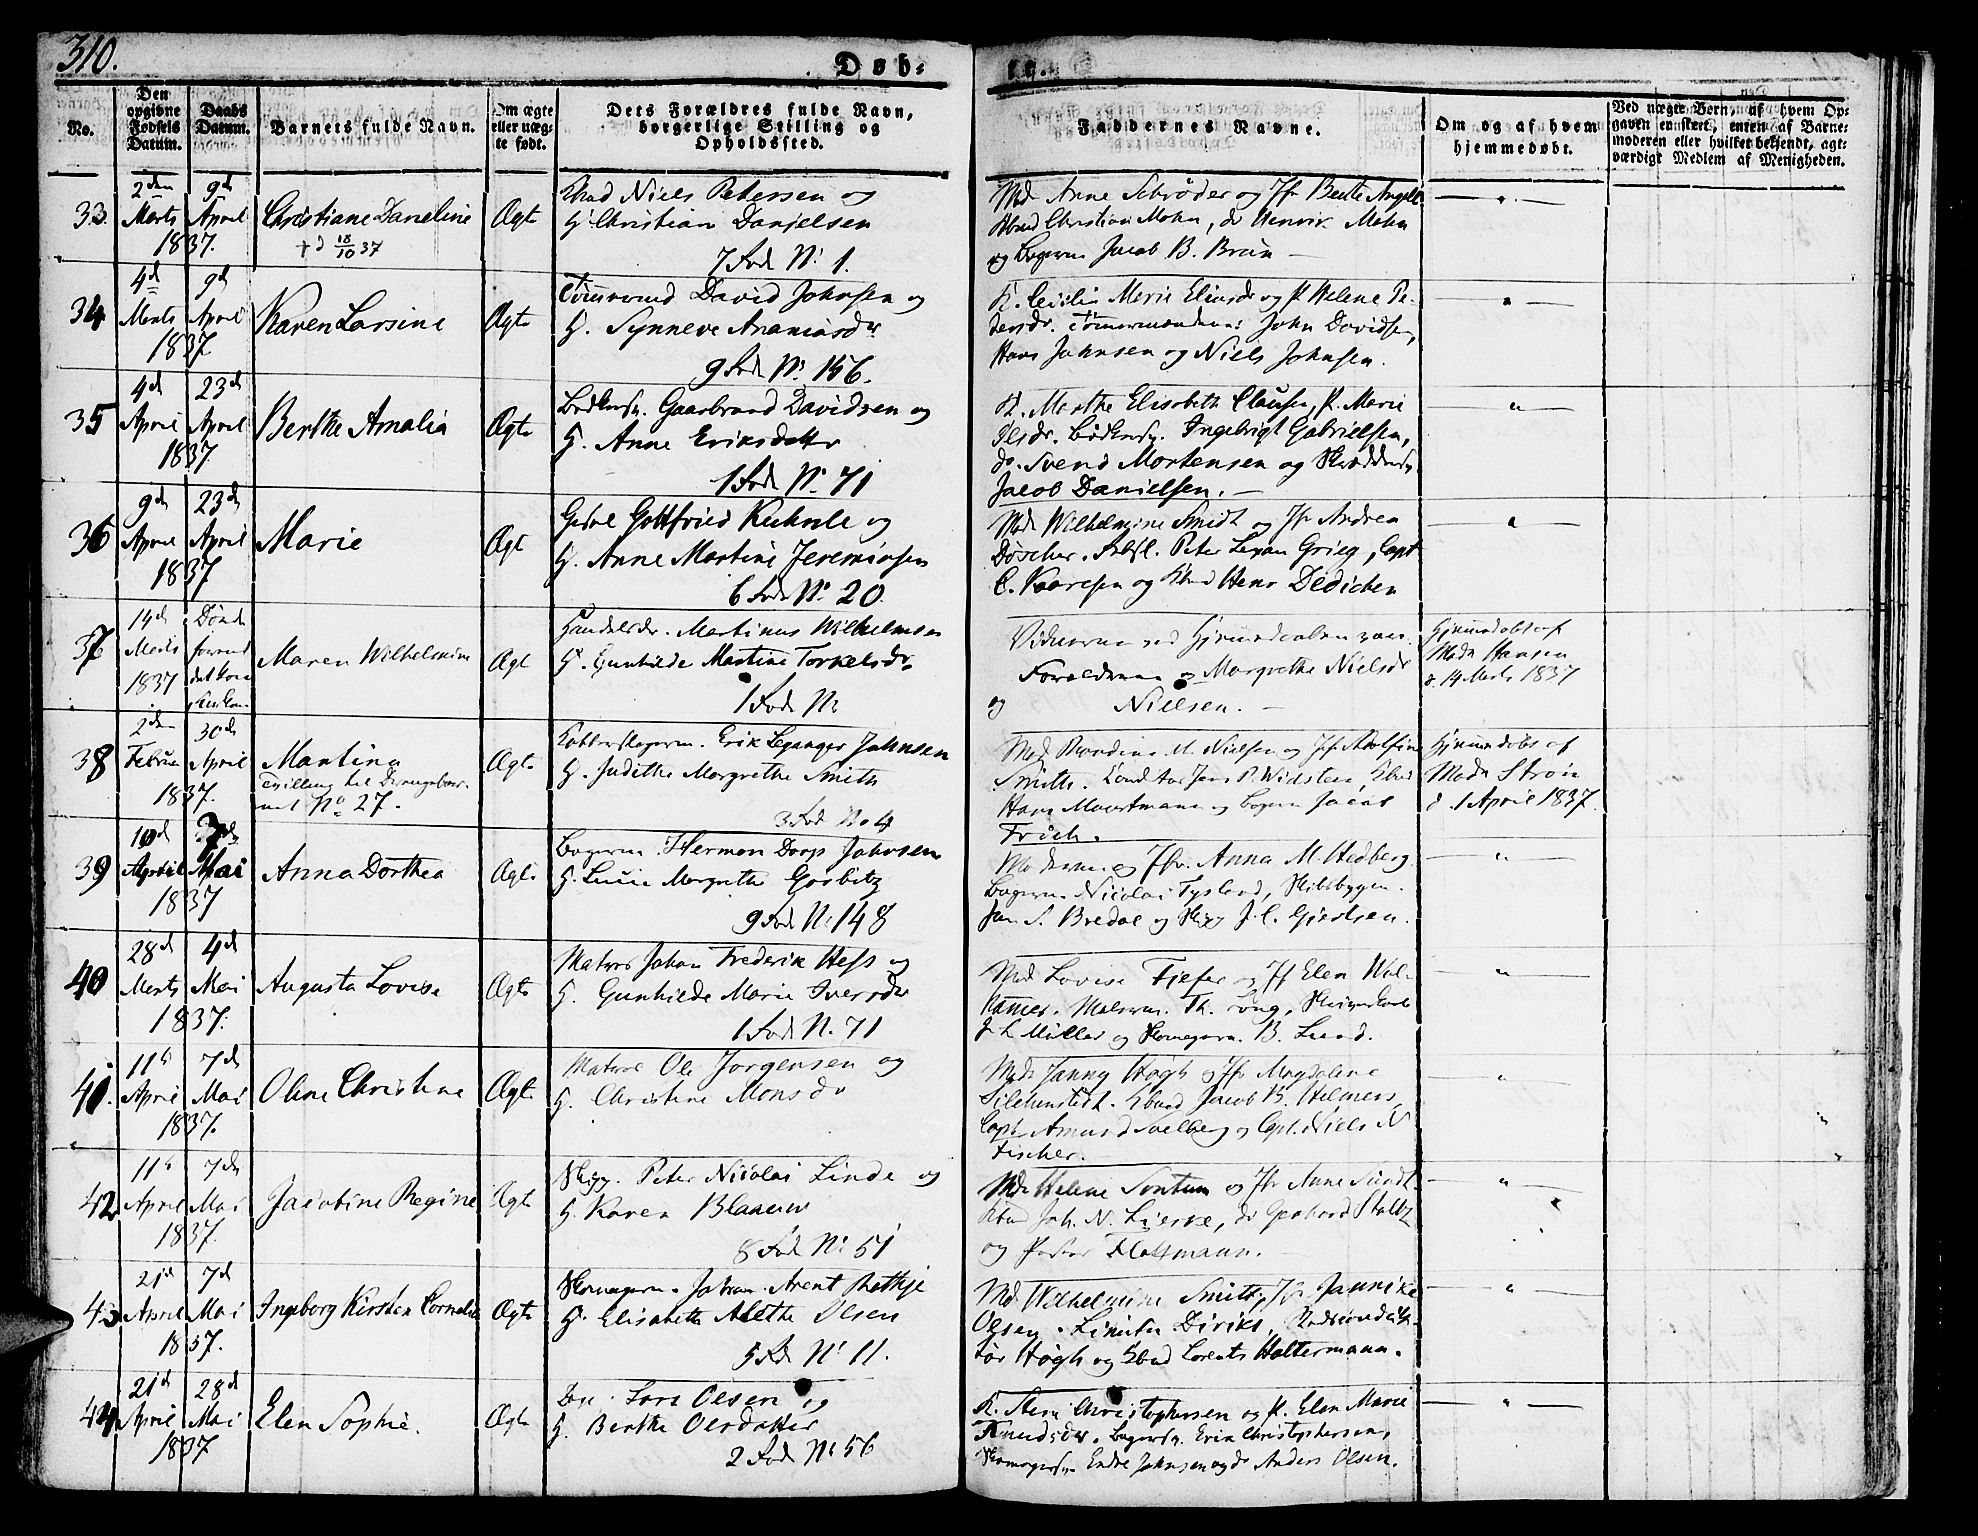 310.
Døb-
te.
No.
Den opgivne Fødsels Datum.
Daabs Datum.
Barnets fulde Navn.
Om ægte eller uæg- te født.
Dets Forældres fulde Navn, borgerlige Stilling og Opholdssted.
Faddernes Navne.
Om og af hvem hjemmedøbt.
Ved uægte Børn, af hvem Op-
gaven er skeet, enten af Barne-
moderen eller hvilket bekjendt, agt-
værdigt Medlem af Menigheden.
33.
2den Marts 1837.
9d April
Christiane Daneline
+ d 18/10 37
Ægte
Niels Petersen og
H. Christian Danielsen
7 Fod No 1.
Md Anne Schrøder og Jfr Bertte
Christian Mohn, do Henrik Mohn
og Bagerm Jacob B. Brun
34
4d Marts 1837
9d April
Karen Larsine
Ægte
Tømmermd David Johnsen og
H. Synneve Ananiasdr
9 Fod No 156.
K. Cicilia Marie Eliasdr og P. Helene Pe-
dersdr. Tømmermændene: John Davidsen,
Hans Johnsen og Niels Johnsen.
35
4d April 1837
23d April
Berthe Amalia
Ægte
Bødkersv. Gaasbrand Davidsen og
H. Anne Eriksdatter
1 Fod No 71
K. Marthe Elisabeth Clausen, P. Marie
Olsdr. Bødkersv. Ingebrigt Gabrielsen,
do. Svend Mortensen og Skræddersv
Jacob Danielsen.
36
9d April 1837
23d April
Marie
Ægt
Gottfried Kuhnle og
H. Anne Martine Jeremiasen
6 Fod No 20.
Md Wilhelmine Smidt og Jfr Andrea
Døscher. Peter Lexau Grieg, Capt
C. Kaaresen og Kbmd Henr Dedichen
37
14d Marts 1837
Maren Wilhelmine
Ægt
Handelsbr. Martinus Wilhelmsen
H. Gunhilde Martine Torkelsdr
1 Fod No
Vidnerne ved Hjemmedaaben vare
Forældrene og Margrethe Nielsdr
og Nielsen.
Hjemmedøbt af
Mdm Hansen
d. 14 Marts 1837
38
2den Februar 1837.
30d April
Martina
Tvilling til Drengebar-
net No 27.
Ægte
Erik Leganger Johnsen
H. Judithe Margrethe Smith
3 Fod No 4
Md Berndine M. Nielsen og Jfr Adolfine
Smith. Jens P. Widsten, Kbmd
Hans Moortmann og Bagerm Jacob
Frich.
Hjemmedøbt af
Mdm Strøm
d. 1 April 1837.
39
10d April 1837
3d Mai
Anna Dorthea
Ægte
Bagerm. Herman Dorp Johnsen
H. Lucie Margrethe Gosbitz
9 Fod No 148
Moderen og Jfr. Anna M. Hedberg.
Bagerm. Nicolai Tysland, Skibsbyggm.
Jan S. Bredal og Skipp J. C. Giertsen.
40
28d Marts 1837.
4d Mai
Augusta Lovise
Ægte
Matros Johan Frederik Hess og
H. Gunhilde Marie Iversdr
1 Fod N. 71
Md Lovise Fiefer og Jf Elen Wal-
Malerm. Th. Lung,
J. L Müller og Skomagerm. B. Lund.
41.
11te April 1837.
7d Mai
Oline Christine
Ægte
Matros Ole Jørgensen og
H. Christine Monsdr
Md Janny Høgh og Jfr Magdalene
Silchenstedt. Kbmd Jacob B. Helmers
Capt Amund Svelberg og Capt. Niels N
Fischer.
42
11te April 1837.
7de Mai
Jacobine Regine
Ægte
Skipp. Peter Nicolai Linde og
H. Karen Blaauw
8 Fod No 51
Md Helene Sontum og Jfr Anne Sundt.
Kbmd Joh. N. Lierse, do Gerhard Stoltz
og Pastor Flottmann.
43
21d April 1837.
7d Mai
Ingeborg Kirsten Cornelia
Ægte
Skomagerm. Johan Arent Rathje
H. Elisabeth Alethe Olsen
5 Fod No 11.
Md Wilhelmine Smith, Jfr Jannike
Olsen. Diriks,
tør Høgh og Kbmd Lorents Holtermann.
44
21d April 1837
28d Mai
Elen Sophie
Ægte
Lars Olsen og
H. Berthe Olesdatter
2 Fod No 56
K. Christophersen og P. Elen Marie
Knudsdr. Bagersv. Erik Christophersen,
Skomagersv Endre Johnsen og do Anders Olsen.